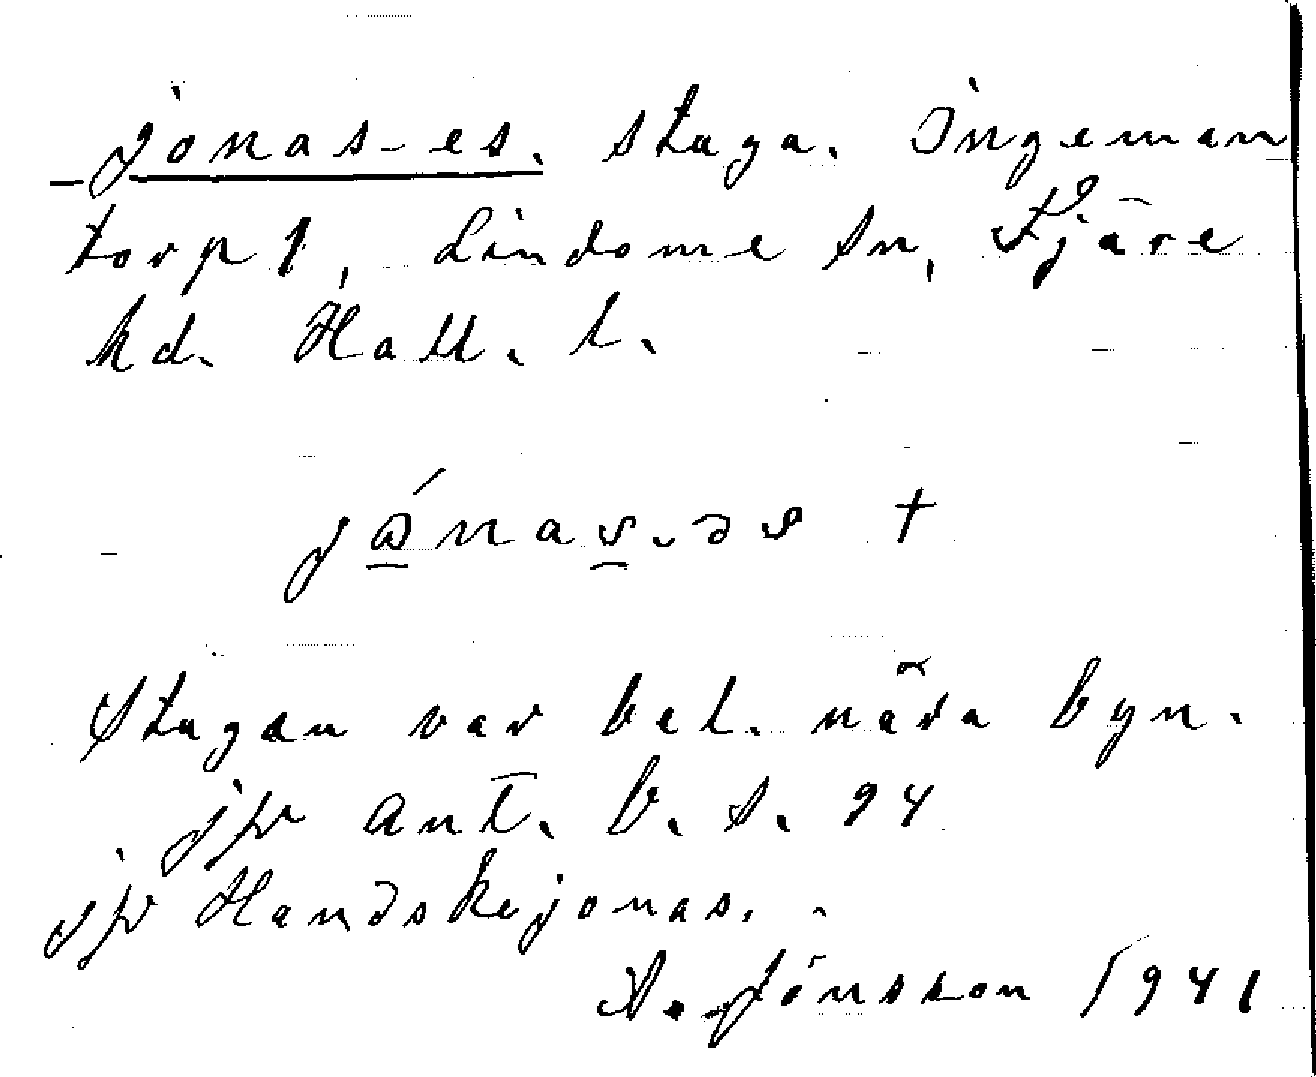 jonas-es. stuga. Ingeman
torp 1, Lindome sn, Fjäre
hd. Hall. l.
jɷ́nas.əs †
Stugan var bel. nära byn.
jfr ant. b. s. 94
jfr Handskejonas.
A. Jönsson 1941